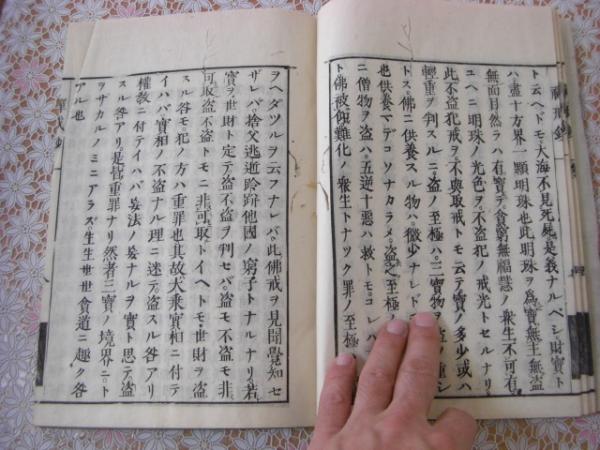 ト云ヘドモ大海不見死屍是義ナルベシ財寶ト
ハ盡十方界一顆明珠也此明珠ヲ為寶無主無盗
無面目然ラハ有寶テ貧窮無福慧ノ衆生不可有
ユヘニ明珠ノ光色ヲ不盗犯ノ戒光トセルナリ
此不盗犯戒ヲ不與取戒トモ云テ寶ノ多少或ハ
輕重ヲ判スルニ盗ノ至極ハ三寶物ヲ
トス佛ニ供養スル物ハ微少ナレドモ
也供養マデコソナカラメ盗之至極
ニ僧物ヲ盗ハ五逆十悪ハ救トモコレハ
ト佛故販難化ノ衆生トナツク罪ノ至極
ヲヘダツルヲ云フナレバ此佛戒ヲ見聞覺知セ
ザレバ捨父逃逝跉跰他國ノ窮子トナルナリ若
實ヲ世財ト定テ盗不盗ヲ判セバ盗モ不盗モ非
可取盗不盗トモニ非可取トイヘトモ世財ヲ盗
スル咎モ犯ノ方ハ重罪也其故大乗實相ニ付テ
イハバ實相ノ不盗ナル理ニ迷テ盗スル咎アリ
權教ニ付テイハバ妄法ノ妄ナルヲ實ト思テ盗
スル咎アリ是皆重罪ナリ然者三寶ノ境界ニト
ヲサカルノミニアラズ生生世世貪道ニ趣ク咎
アル也